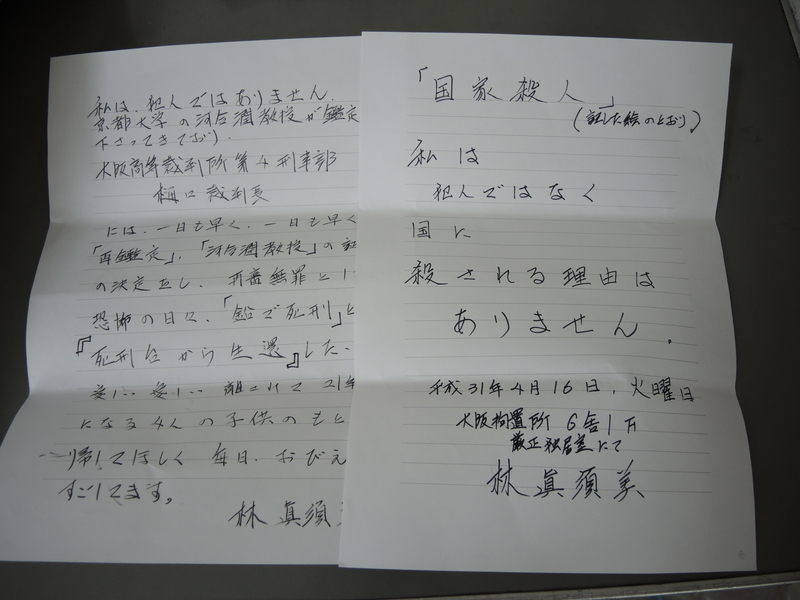 私は、犯人ではありません。
京都大学の河合潤教授が鑑定
下さってきており、
大阪高等裁判所第4刑事部
樋口裁判長
には、一日も早く、一日も早く
「再鑑定」、「河合潤教授」の証
の決定なし、再審無罪とし
恐怖の日々、「鉛で死刑」と
『死刑台から生還』した、
離されて21年
になる4人の子供のもと
へ帰してほしく毎日、おびえ
すごしてます。
林眞須
「国家殺人」
(記した絵のとおり)
私は
犯人ではなく
国に
殺される理由は
ありません。
平成31年4月16日、火曜日
大阪拘置所 6舎1万
厳正独居室にて
林眞須美